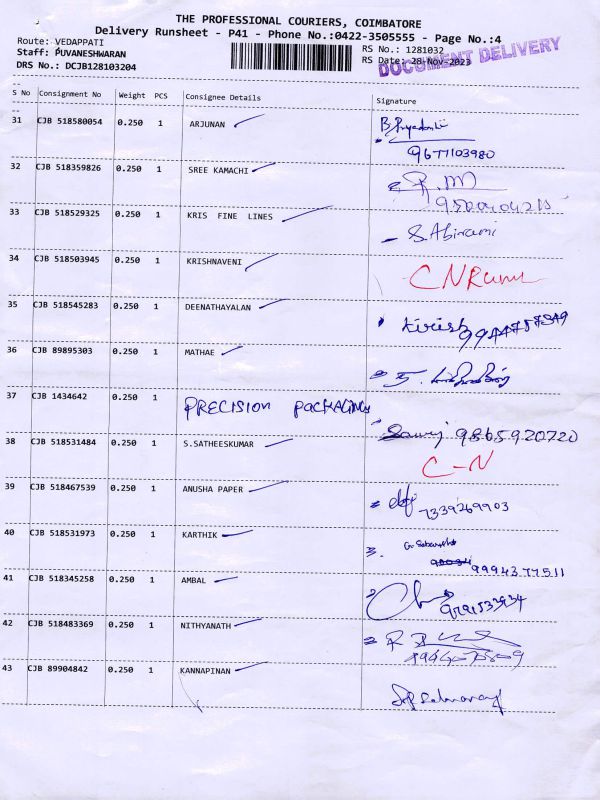 THE PROFESSIONAL COURIERS, COIMBATORE
Delivery Runsheet - P41 - Phone No.:0422-3505555 - Page No.:4
Route: VEDAPPATI
Staff: PUVANESHWARAN
DRS No.: DCJB128103204
RS No.: 1281032
RS Date: 28-Nov-2023
DOCUMENT DELIVERY
S No Consignment No Weight PCS Consignee Details Signature
31 CJB 518580054 0.250 1 ARJUNAN
9677103980
32 CJB 518359826 0.250 1 SREE KAMACHI
33 CJB 518529325 0.250 1 KRIS FINE LINES
S.Abirami
34 CJB 518503945 0.250 1 KRISHNAVENI
35 CJB 518545283 0.250 1 DEENATHAYALAN
36 CJB 89895303 0.250 1 MATHAE
37 CJB 1434642 0.250 1 PRECISION PACKAGING
9865920720
38 CJB 518531484 0.250 1 S.SATHEESKUMAR
C-N
39 CJB 518467539 0.250 1 ANUSHA PAPER
7339269903
40 CJB 518531973 0.250 1 KARTHIK
9994377511
41 CJB 518345258 0.250 1 AMBAL
42 CJB 518483369 0.250 1 NITHYANATH
43 CJB 89904842 0.250 1 KANNAPINAN